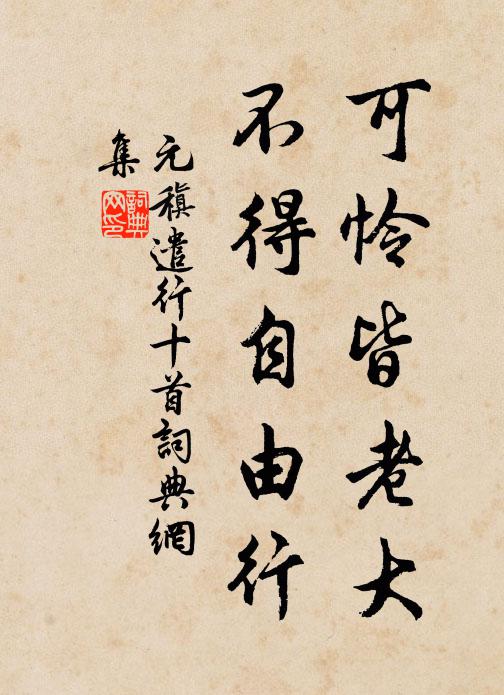 可怜皆老大
不得自由行
元稹遣行十首詞典網
集
詞典
网印